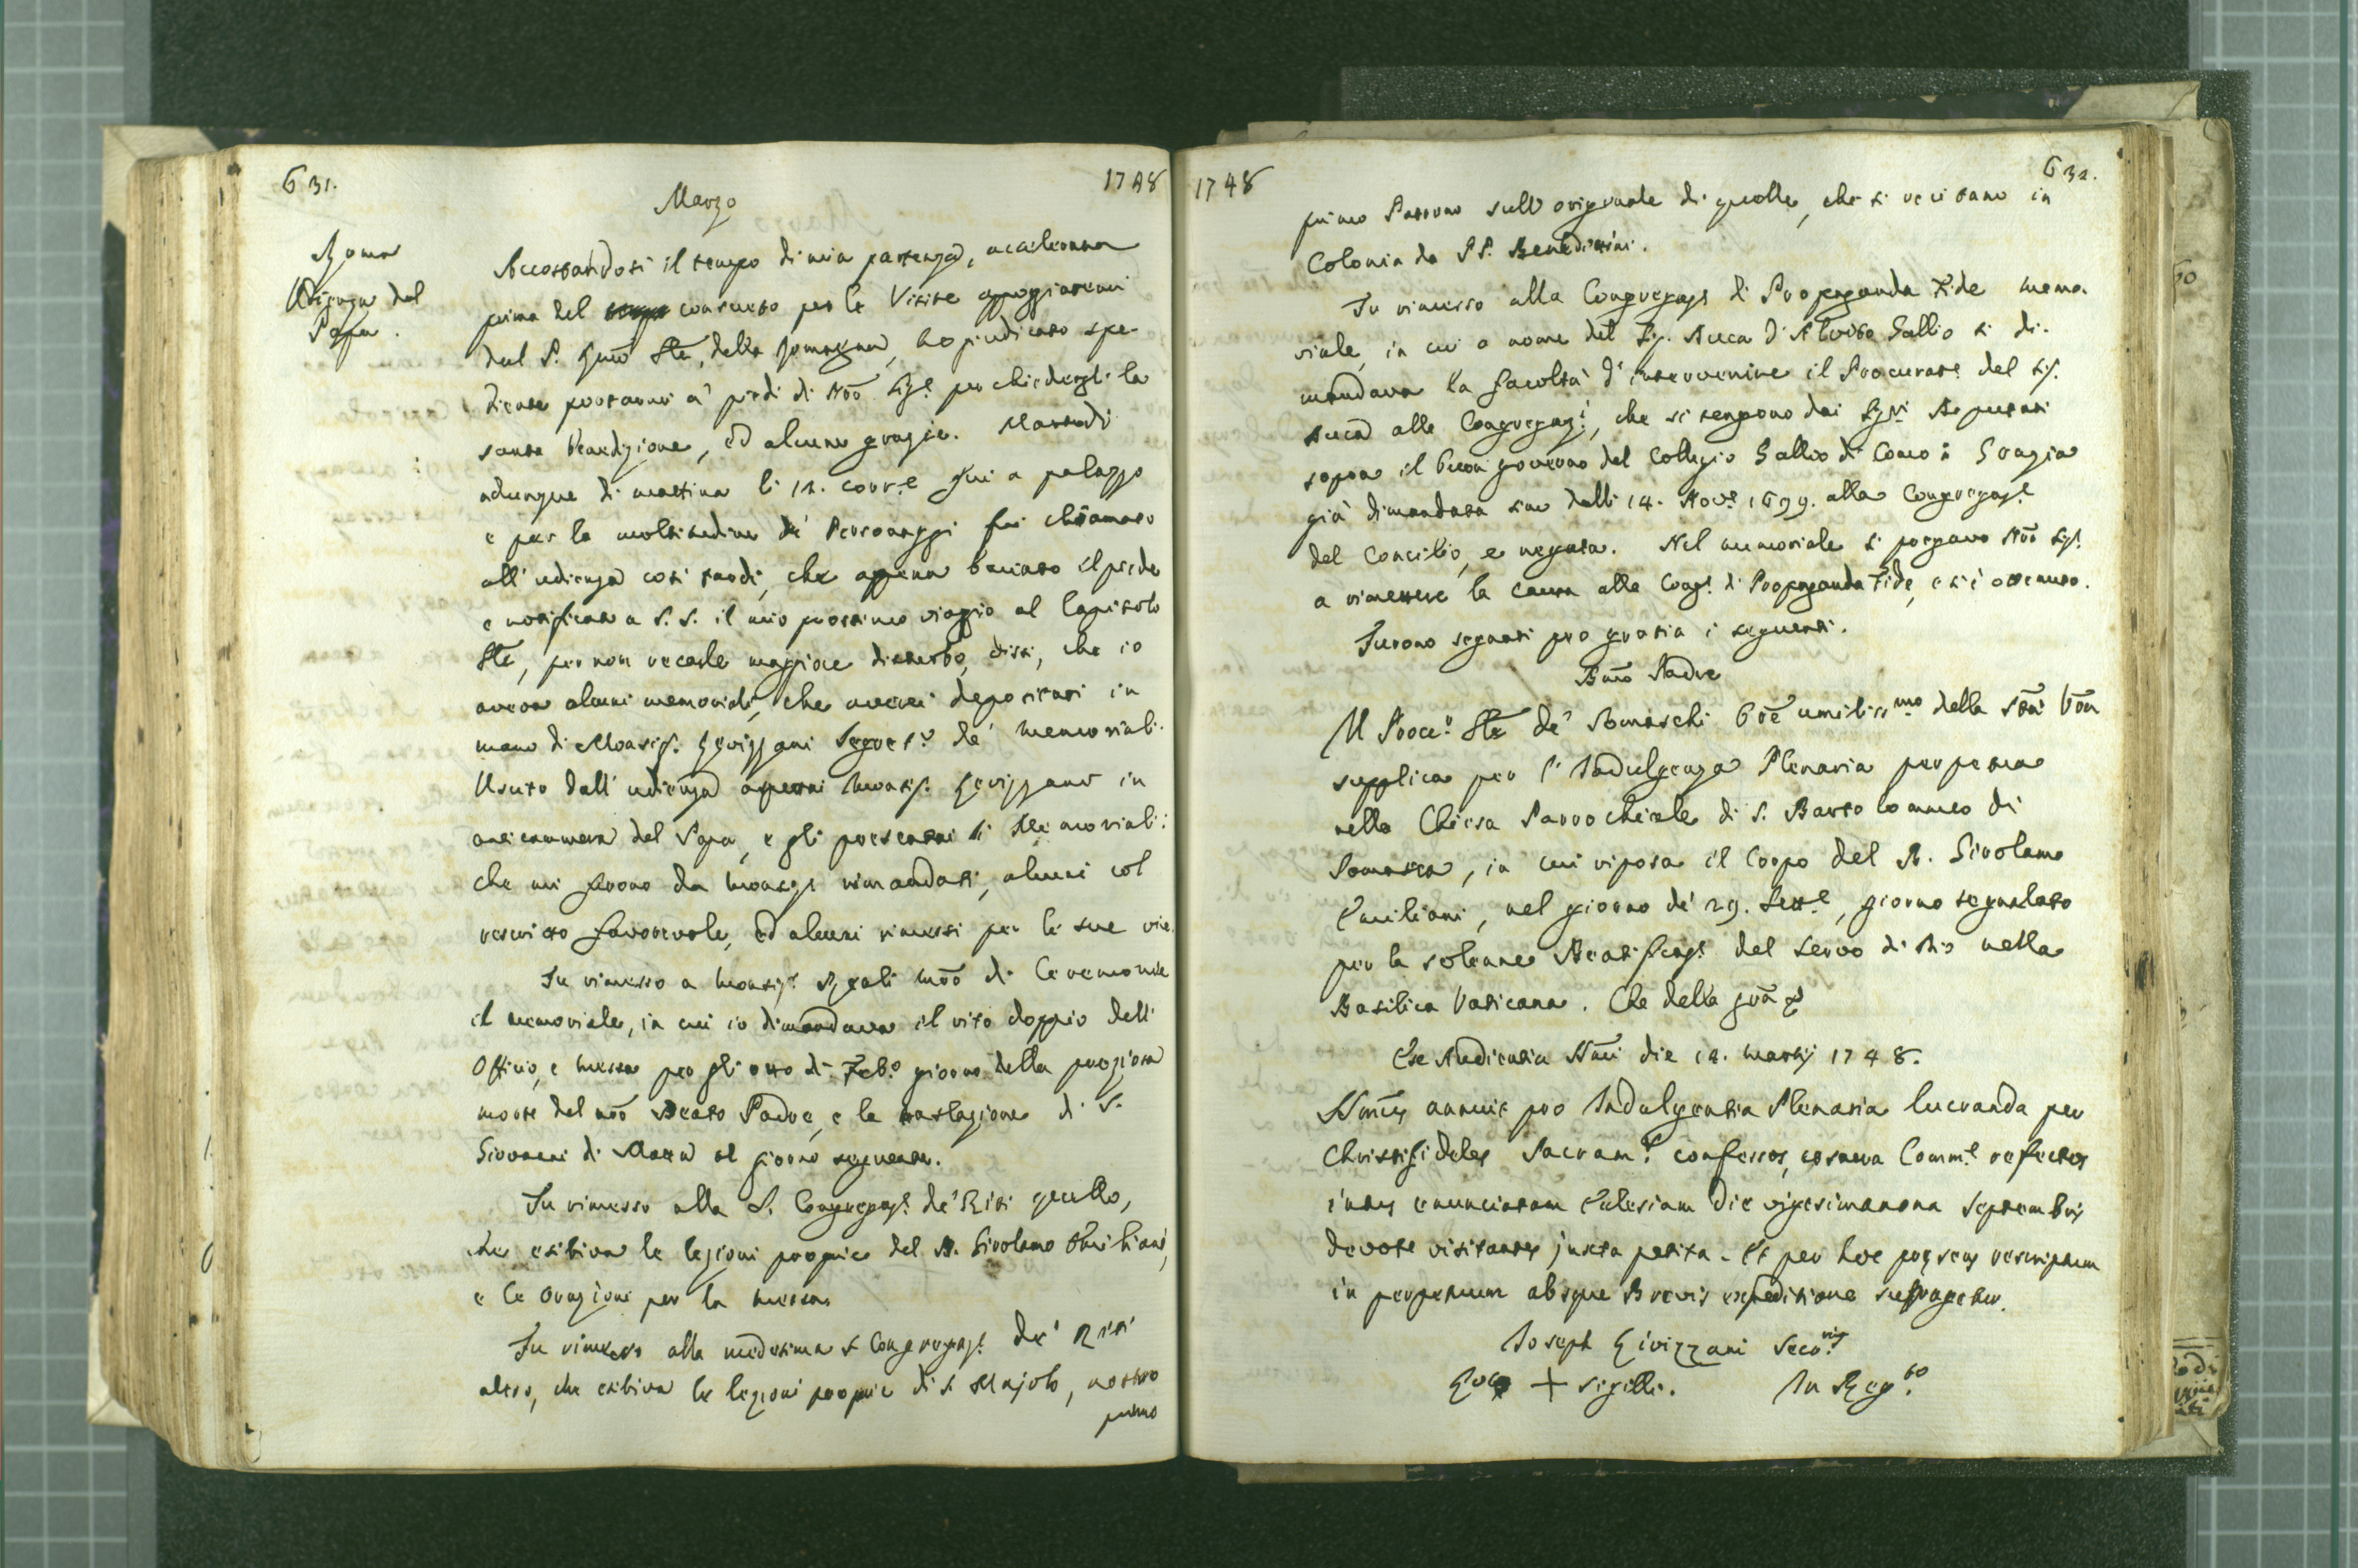 631.
1748
Marzo
Roma
Udienza del
Papa.
Accostandosi il tempo di mia partenza, accelerata
prima del consueto per le Visite appoggiatemi
dal P. Gnẽ Ste, della Romagna, ho giudicato spe-
diente portarmi a' piedi di Nrõ Sigre per chiedergli la
santa benedizione, ed alcune grazie. Martedì
adunque di mattina li 12. corre fui a palazzo
e per la moltitudine de' Personaggi fui chiamato
all' udienza così tardi, che appena baciato il piede
e notificato a S. S. il mio prossimo viaggio al Capitolo
Gle, per non recarle maggiore disturbo, dissi, che io
aveva alcuni memoriali, che averei depositati in
mano di Monsigr. Livizzani Segretro de' memoriali.
Uscito dall' udienza aspettai Monsigr. Livizzani in
anticamera del Papa, e gli presentai li Memoriali:
che mi furono da Monsigr rimandati, alcuni col
rescritto favorevole, ed alcuni rimessi per le sue vie.
Fu rimesso a Monsigr. Reali mrõ di Ceremonie
il memoriale, in cui io dimandava il rito doppio dell'
Officio, e Messa per gli otto di Febo giorno della preziosa
morte del nrõ Beato Padre, e la traslazione di S.
Giovanni di Mata al giorno seguente.
Fu rimesso alla S. Congregaze de' Riti quello,
che esibiva le lezioni proprie del B. Girolamo Emiliani,
e le Orazioni per la Messa
Fu rimesso alla medesima S Congregaze de' Riti
altro, che esibiva le lezioni proprie di S Majolo, nostro
primo
1748
632.
primo Patrono sull' originale di quelle, che si recitano in
Colonia da PP. Benedittini.
Fu rimesso alla Congregaze di Propaganda Fide memo-
riale, in cui a nome del Sigr. Duca d'Alvito Gallio si di-
mandava la facoltà d'intervenire il Procurate del Sigr.
Duca alle Congregazi, che si tengono dai Sigri Deputati
sopra il buon governo del Collegio Gallio di Como: Grazia
già dimandata sino dalli 14. Nove 1699. alla Congregaze
del Concilio, e negata. Nel memoriale si pregava Nrõ Sigre
a rimettere la causa alla Conge di Propaganda Fide, e si è ottenuto.
Furono segnati pro gratia i seguenti.
Bmõ Padre
Il Procre Gle de' Somaschi Orẽ umilissmo della Stã Vrã
supplica per l' Indulgenza Plenaria perpetua
nella Chiesa Parrochiale di S. Bartolommeo di
Somasca, in cui riposa il Corpo del B. Girolamo
Emiliani, nel giorno de' 29. Sette, giorno segnalato
per la solenne Beatificaze del Servo di Dio nella
Basilica Vaticana. Che della grã &
Ex Audientia SSmi die 12. Martij 1748.
SSmus annuit pro Indulgentia Plenaria lucranda per
Christifideles Sacramte confessos, ac sacra Comme refectos
intus enunciatam Ecclesiam die vigesimanona Septembris
devote visitantes juxta petita. Et per hoc præsens rescriptum
in perpetuum absque Brevis expeditione suffragetur.
Joseph Livizzani Secrius
Loco + sigilli. In Regto